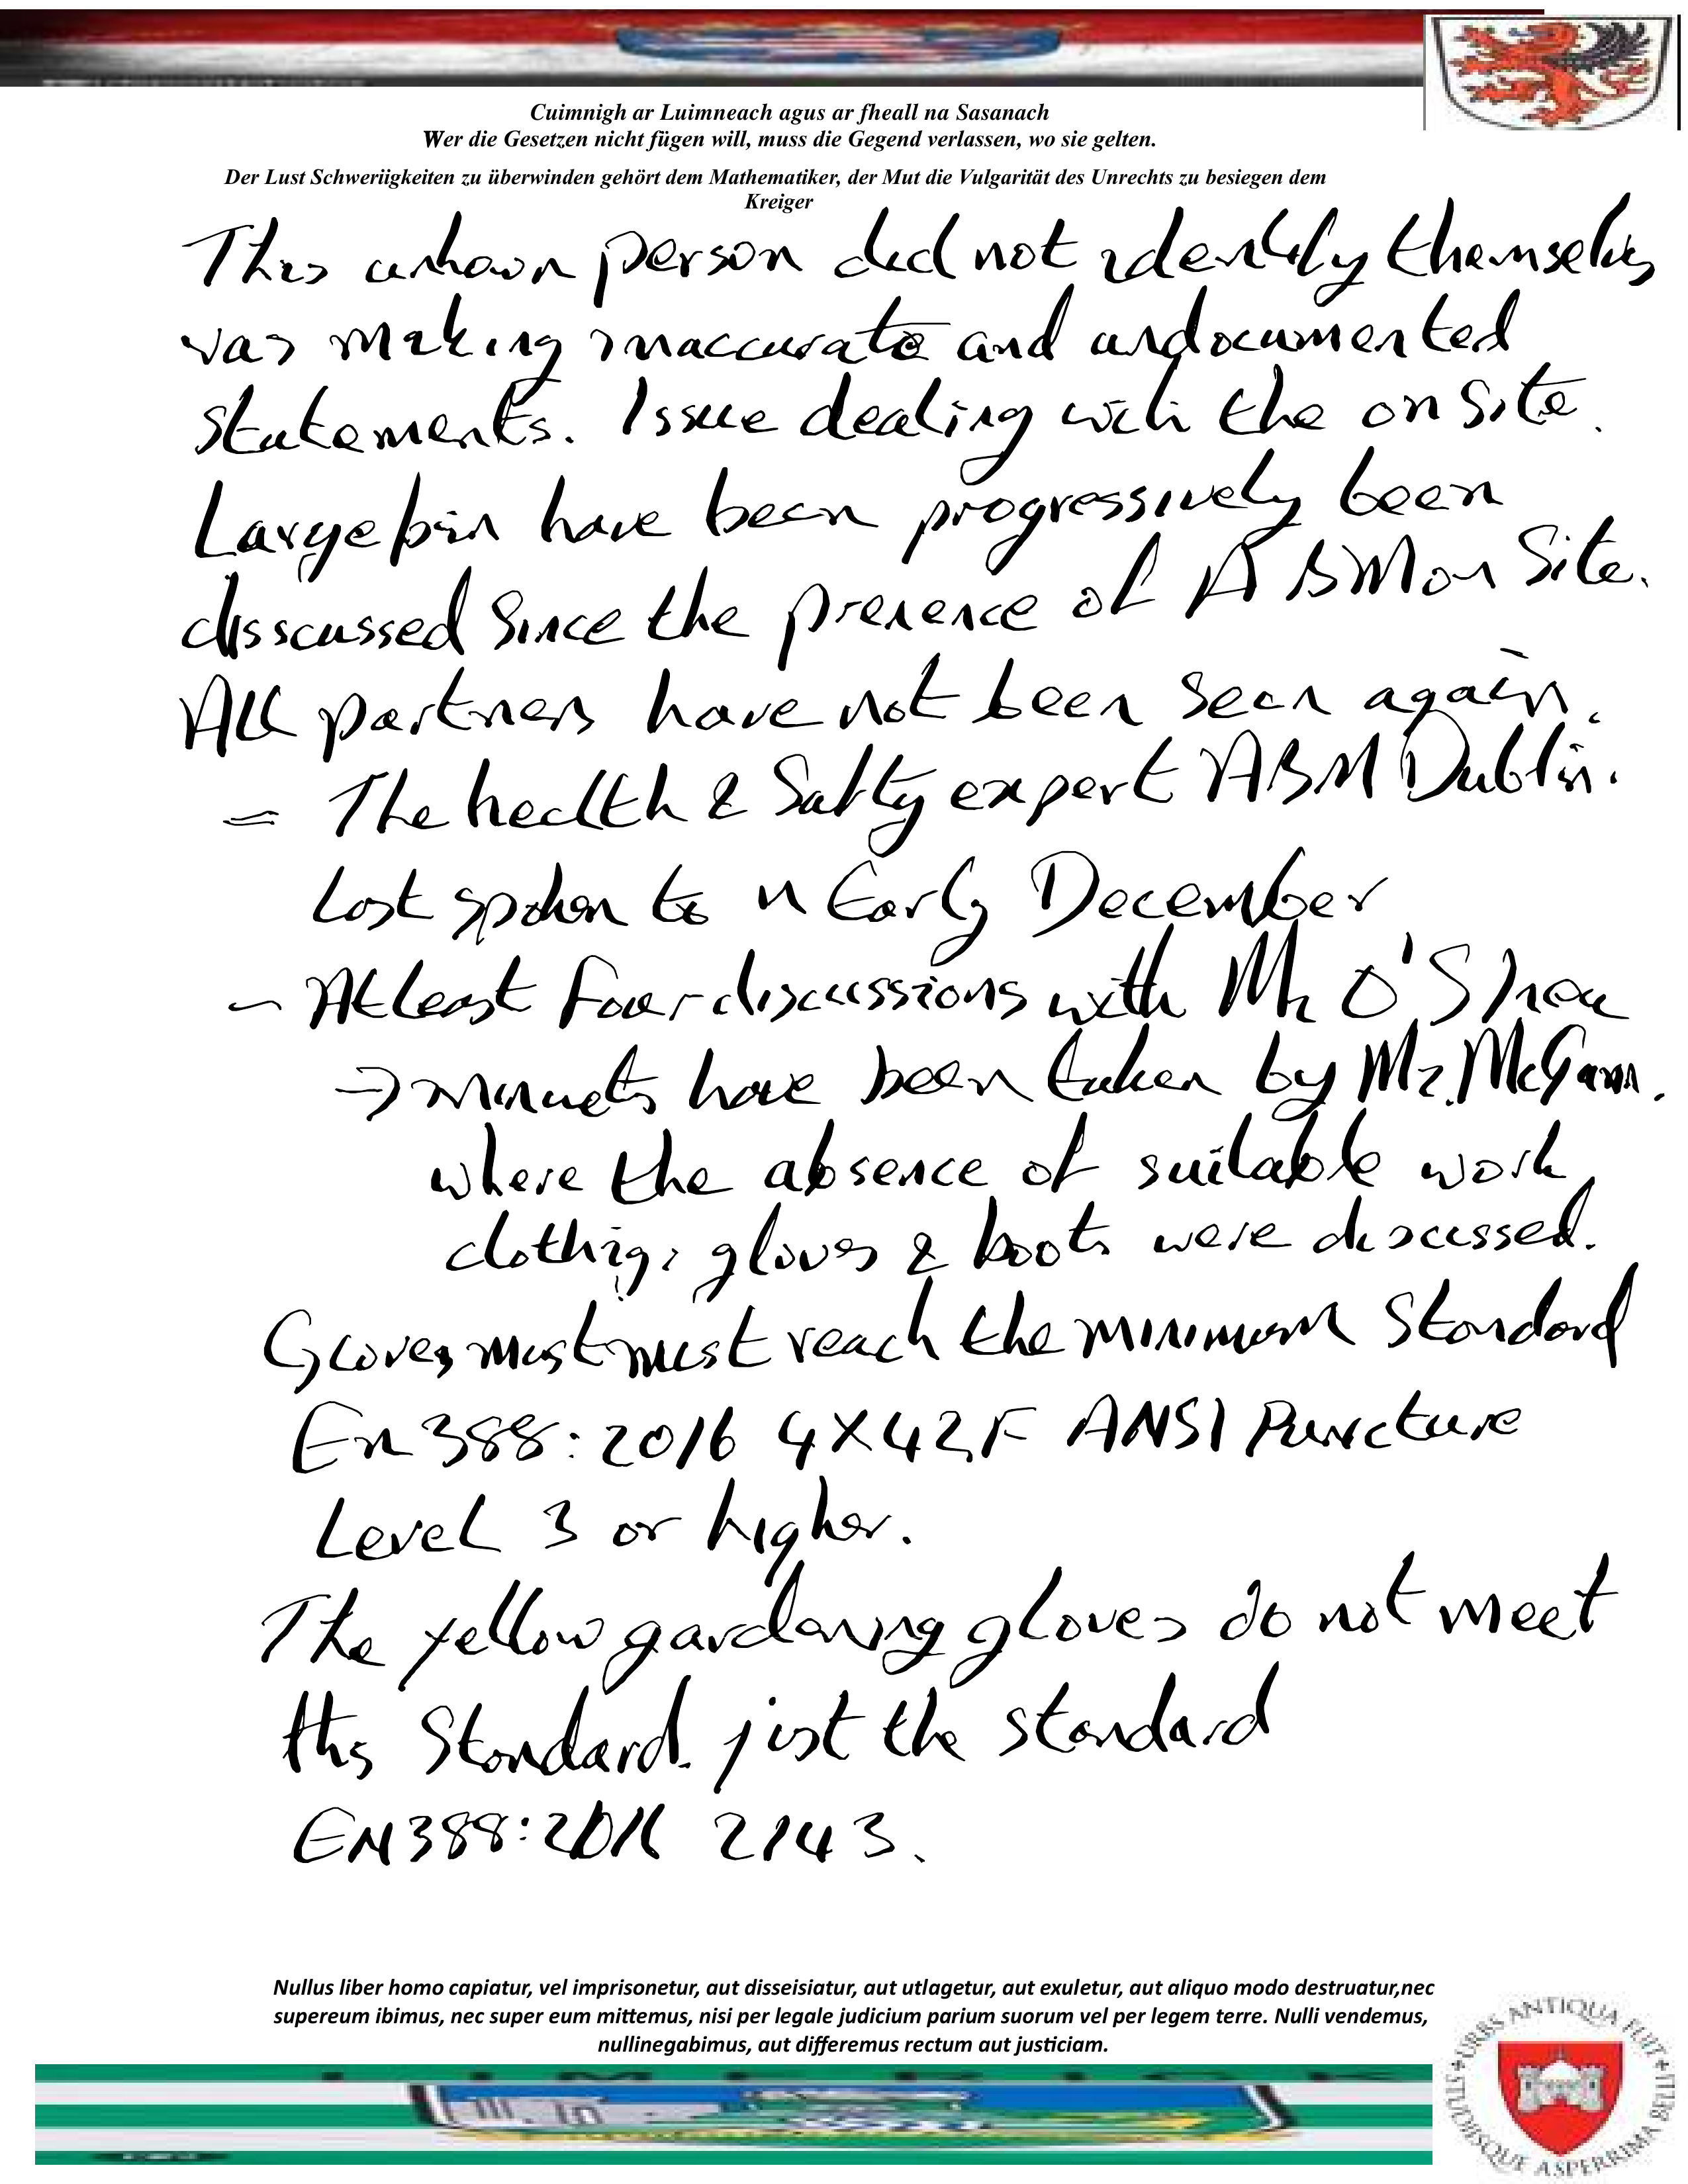 Cuimnigh ar Luimneach agus ar fheall na Sasanach
Wer die Gesetzen nicht fügen will, muss die Gegend verlassen, wo sie gelten.
Der Lust Schweriigkeiten zu überwinden gehört dem Mathematiker, der Mut die Vulgarität des Unrechts zu besiegen dem
Kreiger
This unknown person did not identify themselves
was making inaccurate and undocumented
statements. Issue dealing with the on site.
Large bin have been progressively been
disscussed since the presence of ABM on Site.
All partners have not been seen again.
= The health & Safty expert ABM Dublin.
Last spoken to in Early December
- At least four discussions with Mr O'Shea
→ minuets have been taken by Mr. McGann.
where the absence of suitable work
clothing, gloves & boots were discussed.
Gloves must must reach the minimum Standard
En 388:2016 4X42F ANSI Puncture
Level 3 or higher.
The yellow gardening gloves do not meet
this Standard. just the standard
EN388:2016 2143.
Nullus liber homo capiatur, vel imprisonetur, aut disseisiatur, aut utlagetur, aut exuletur, aut aliquo modo destruatur,nec
supereum ibimus, nec super eum mittemus, nisi per legale judicium parium suorum vel per legem terre. Nulli vendemus,
nullinegabimus, aut differemus rectum aut justiciam.
URBS ANTIQUA FUIT STUDIISQUE ASPERRIMA BELLI